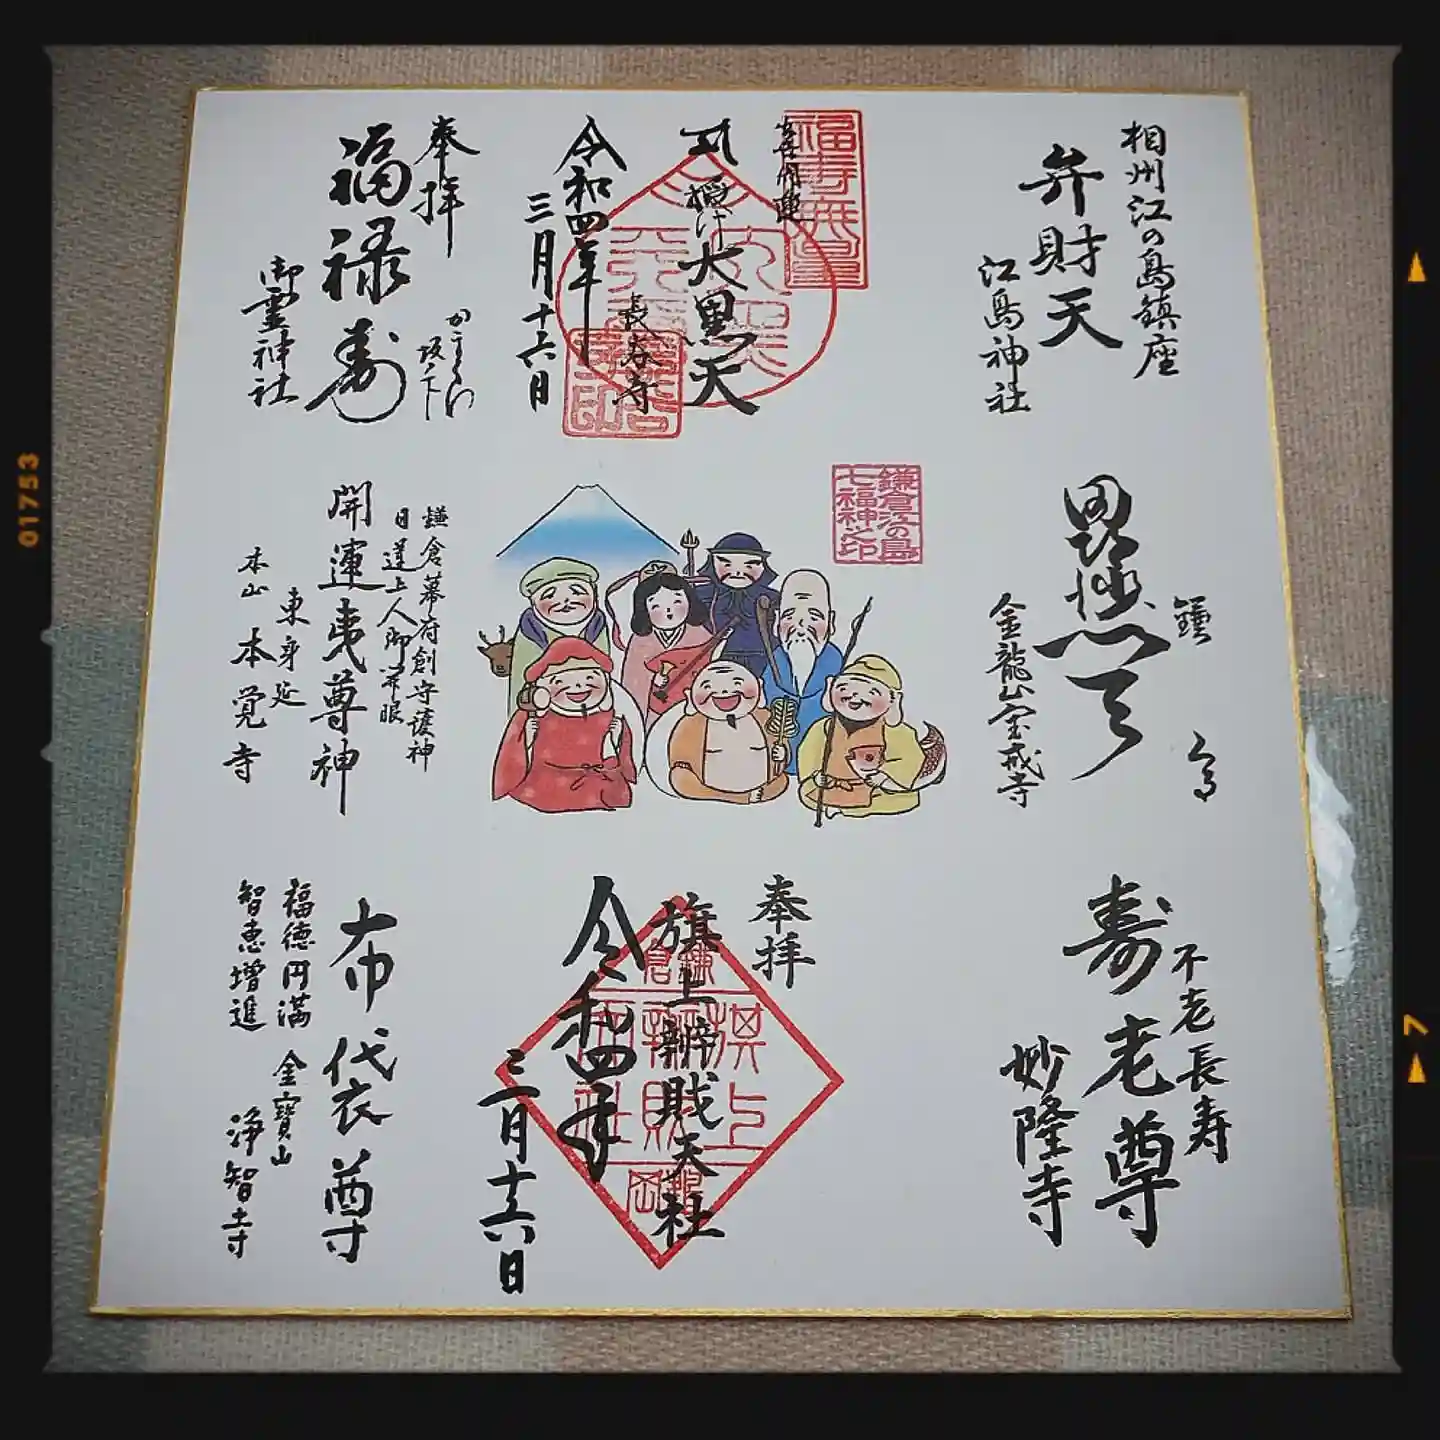 相州江の島鎮座
弁財天
江島神社
福寿無量
授け大黒天
長谷寺
令和四年
三月十六日
奉拝
福禄寿
かまくら
坂ノ下
御霊神社
鎌倉江の島
七福神之印
毘沙门天
金龍山宝戒寺
鎌倉幕府創守護神
日蓮上人御開眼
開運夷尊神
東身延
本山本覚寺
不老長寿
寿老尊
妙隆寺
奉拝
旗上辨財天社
令和四年
三月十六日
布袋尊
福徳円満
智恵増進
金寶山
浄智寺
01753
7